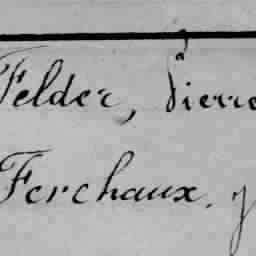 Felder, Pierre
Ferchaux. J